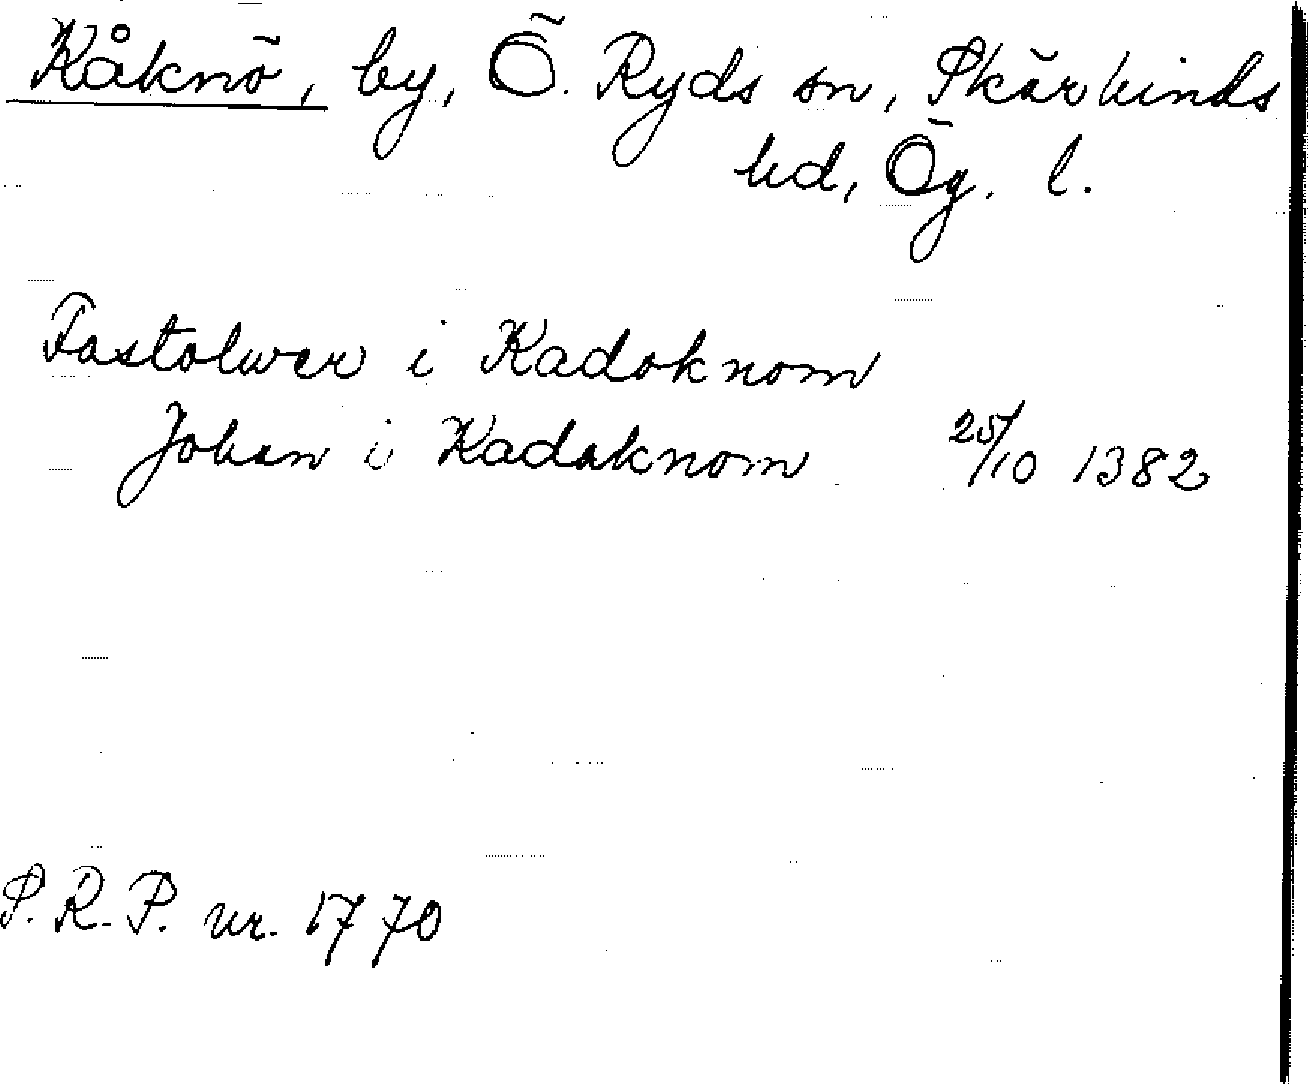 Kåknö, by, Ö. Ryds sn, Skärkinds
hd, Ög. l.
Fastolwer i Kadoknom
Johan i Kadaknom 25/10 1382
S.R.P. nr. 1770